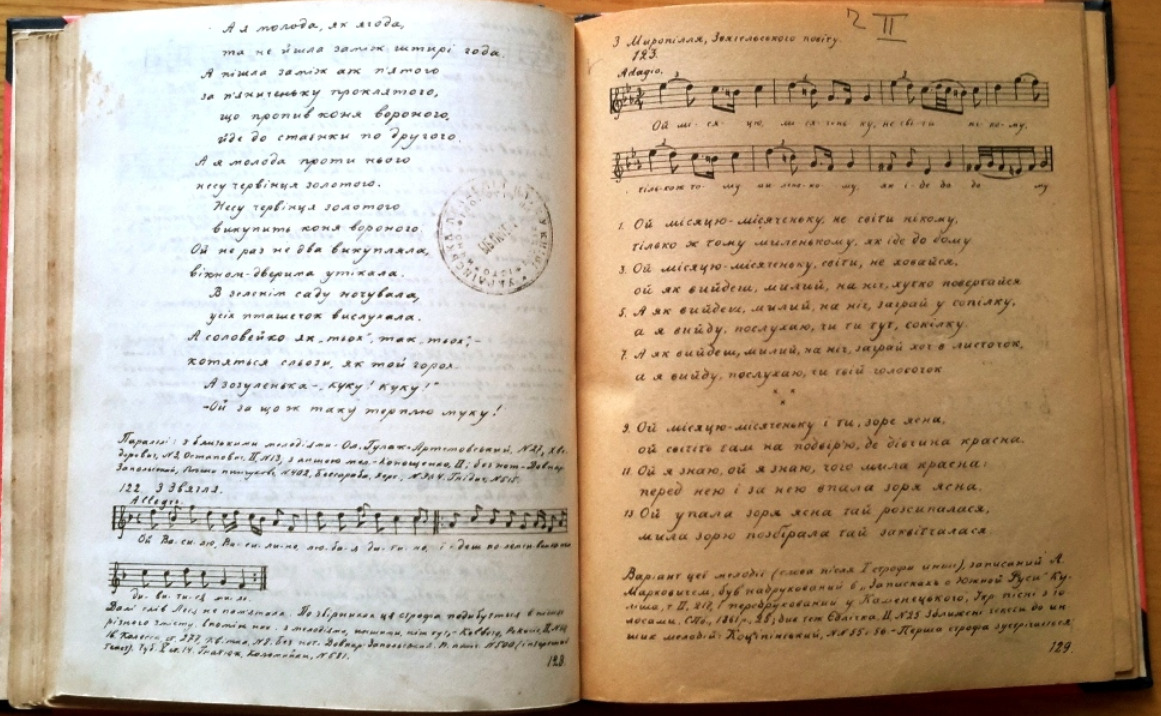 А я молода, як ягода,
та не йшла заміж штирі года.
А пішла заміж аж п'ятого
за п'яниченьку проклятого,
що пропив коня вороного,
йде до стаєнки по другого.
А я молода проти нього
несу червінця золотого.
Несу червінця золотого
викупить коня вороного
Ой не раз не два викупляла,
вікном-дверима утікала.
В зеленім саду ночувала,
усіх пташечок вислухала.
А соловейко як „тьох", так „тьох", –
котяться сльози, як той горох.
А зозуленька –„куку! куку!"
–Ой за що ж таку терплю муку!
Паралелі: з близькими мелодіями – Ол. Гулак-Артемовський, №27,
122. З Звягля.
Allegro.
Ой Ва-си-лю, Ва-си-ли-но, лю-би-я ди-ти-но, і-деш по-
ди-ви-ти-сь ми-ло.
Далі слів Леся не пам'ятала. По збірниках ця строфа подибується в піснях
різного змісту,
128.
2 II
З Миропілля, Звягельського повіту.
123.
Adagio.
Ой мі-ся-цю, мі-ся-чень-ку, не сві-ти ні-ко-му,
тіль-ко ж то-му ми-лень-ко-му, як і-де до до-му
1. Ой місяцю-місяченьку, не світи нікому,
тілько ж тому миленькому, як іде до дому
3. Ой місяцю-місяченьку, світи, не ховайся,
ой як вийдеш, милий, на ніч, хутко повертайся
5. А як вийдеш, милий, на ніч, заграй у сопілку,
а я вийду, послухаю, чи ти тут, сокілку
7. А як вийдеш, милий, на ніч, заграй хоч в листочок,
а я вийду, послухаю, чи твій голосочок
* * *
9. Ой місяцю-місяченьку і ти, зоре ясна,
ой світіть там на подвір'ю, де дівчина красна.
11. Ой я знаю, ой я знаю, чого мила красна:
перед нею і за нею впала зоря ясна.
13. Ой упала зоря ясна тай розсипалася,
мила зорю позбірала тай заквітчалася
Варіант цеї мелодії (слова після I строфи инші), записаний А.
Марковичем, був надрукований в „Записках о Южной Руси" Ку-
ліша, т. II, 217, і передрукований у Каменецького, Укр. пісні з го-
лосами. СПб., 1861 р., 25;
ших мелодій: Коціпінський, №№ 55 і 56. – Перша строфа зустрічається
129.